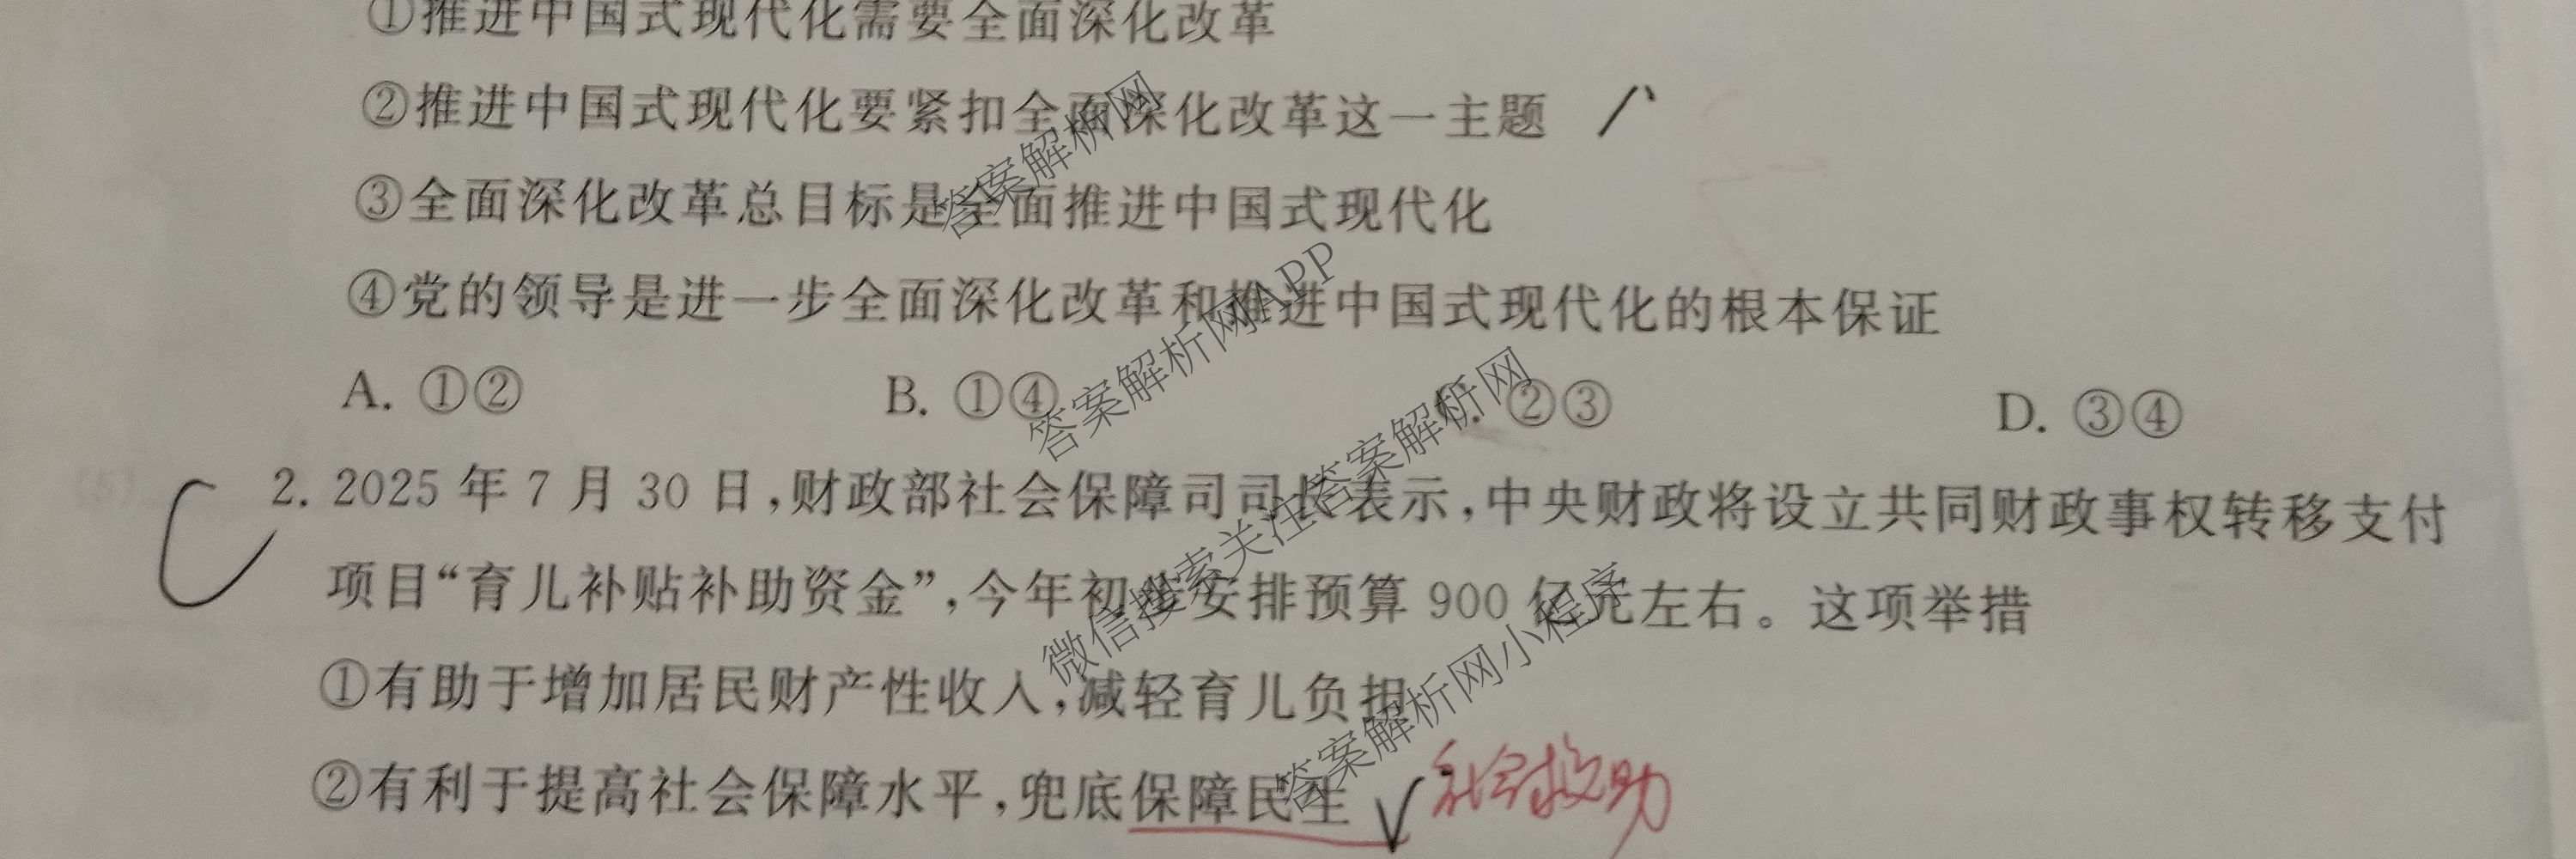 ①推进中国式现代化需要全面深化改革
②推进中国式现代化要紧扣全面深化改革这一主题
③全面深化改革总目标是全面推进中国式现代化
④党的领导是进一步全面深化改革和推进中国式现代化的根本保证
A. ①② B. ①④ C. ②③ D. ③④
C
2. 2025 年 7 月 30 日,财政部社会保障司司长表示,中央财政将设立共同财政事权转移支付
项目“育儿补贴补助资金”,今年初步安排预算 900 亿元左右。这项举措
①有助于增加居民财产性收入,减轻育儿负担
②有利于提高社会保障水平,兜底保障民生 √ 社会救助
答案解析网
答案解析网APP
微信搜索关注:答案解析网
答案解析网小程序